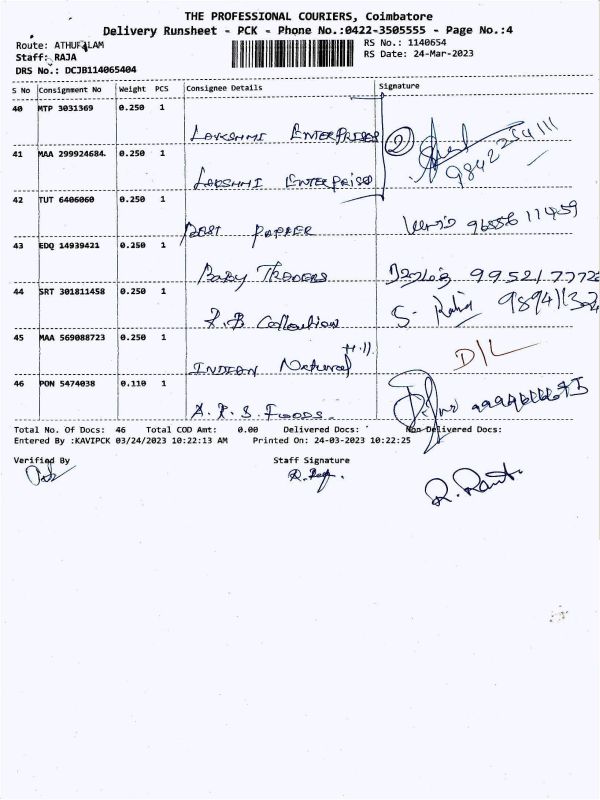 THE PROFESSIONAL COURIERS, Coimbatore
Delivery Runsheet - PCK - Phone No.:0422-3505555 - Page No.:4
Route: ATHUPALAM
RS No.: 1140654
Staff: RAJA
RS Date: 24-Mar-2023
DRS No.: DCJB114065404
S No Consignment No Weight PCS Consignee Details Signature
40 MTP 3031369 0.250 1
LAKSHMI ENTERPRISES 2 9842354111
41 MAA 299924684 0.250 1
LAKSHMI ENTERPRISES
42 TUT 6406060 0.250 1
BEST PAPPER
43 EDQ 14939421 0.250 1
BABY TRADERS
44 SRT 301811458 0.250 1
R.B Collection S-
45 MAA 569088723 0.250 1
INDIAN Natural D/L
46 PON 5474038 0.110 1
A.R.S. FOODS.
Total No. Of Docs: 46 Total COD Amt: 0.00 Delivered Docs: Non Delivered Docs:
Entered By :KAVIPCK 03/24/2023 10:22:13 AM Printed On: 24-03-2023 10:22:25
Verified By Staff Signature